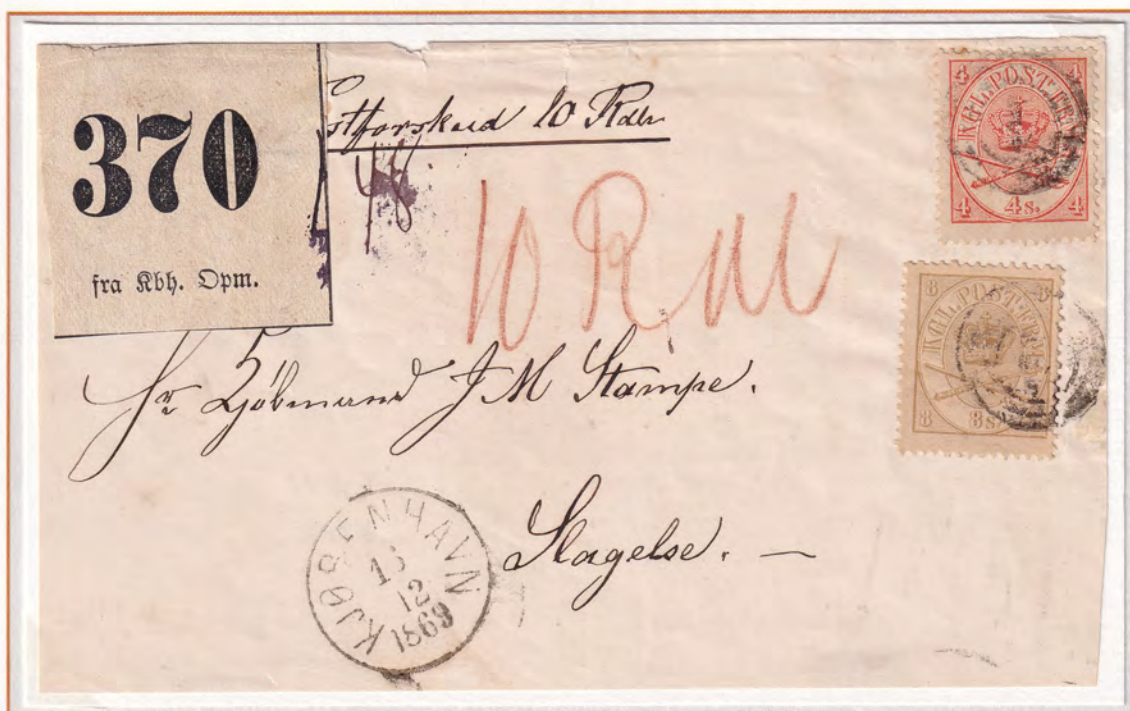 370
fra Kbh. Opm.
Postforskud 10 Rdlr
48
10 Rdl
4 4
KGL. POST. FRM.
4 4s. 4
8 8
KGL. POST. FRM.
8 8s.
Hr Kjöbmand J M Stampe.
Slagelse. —
KJØBENHAVN
12
1869